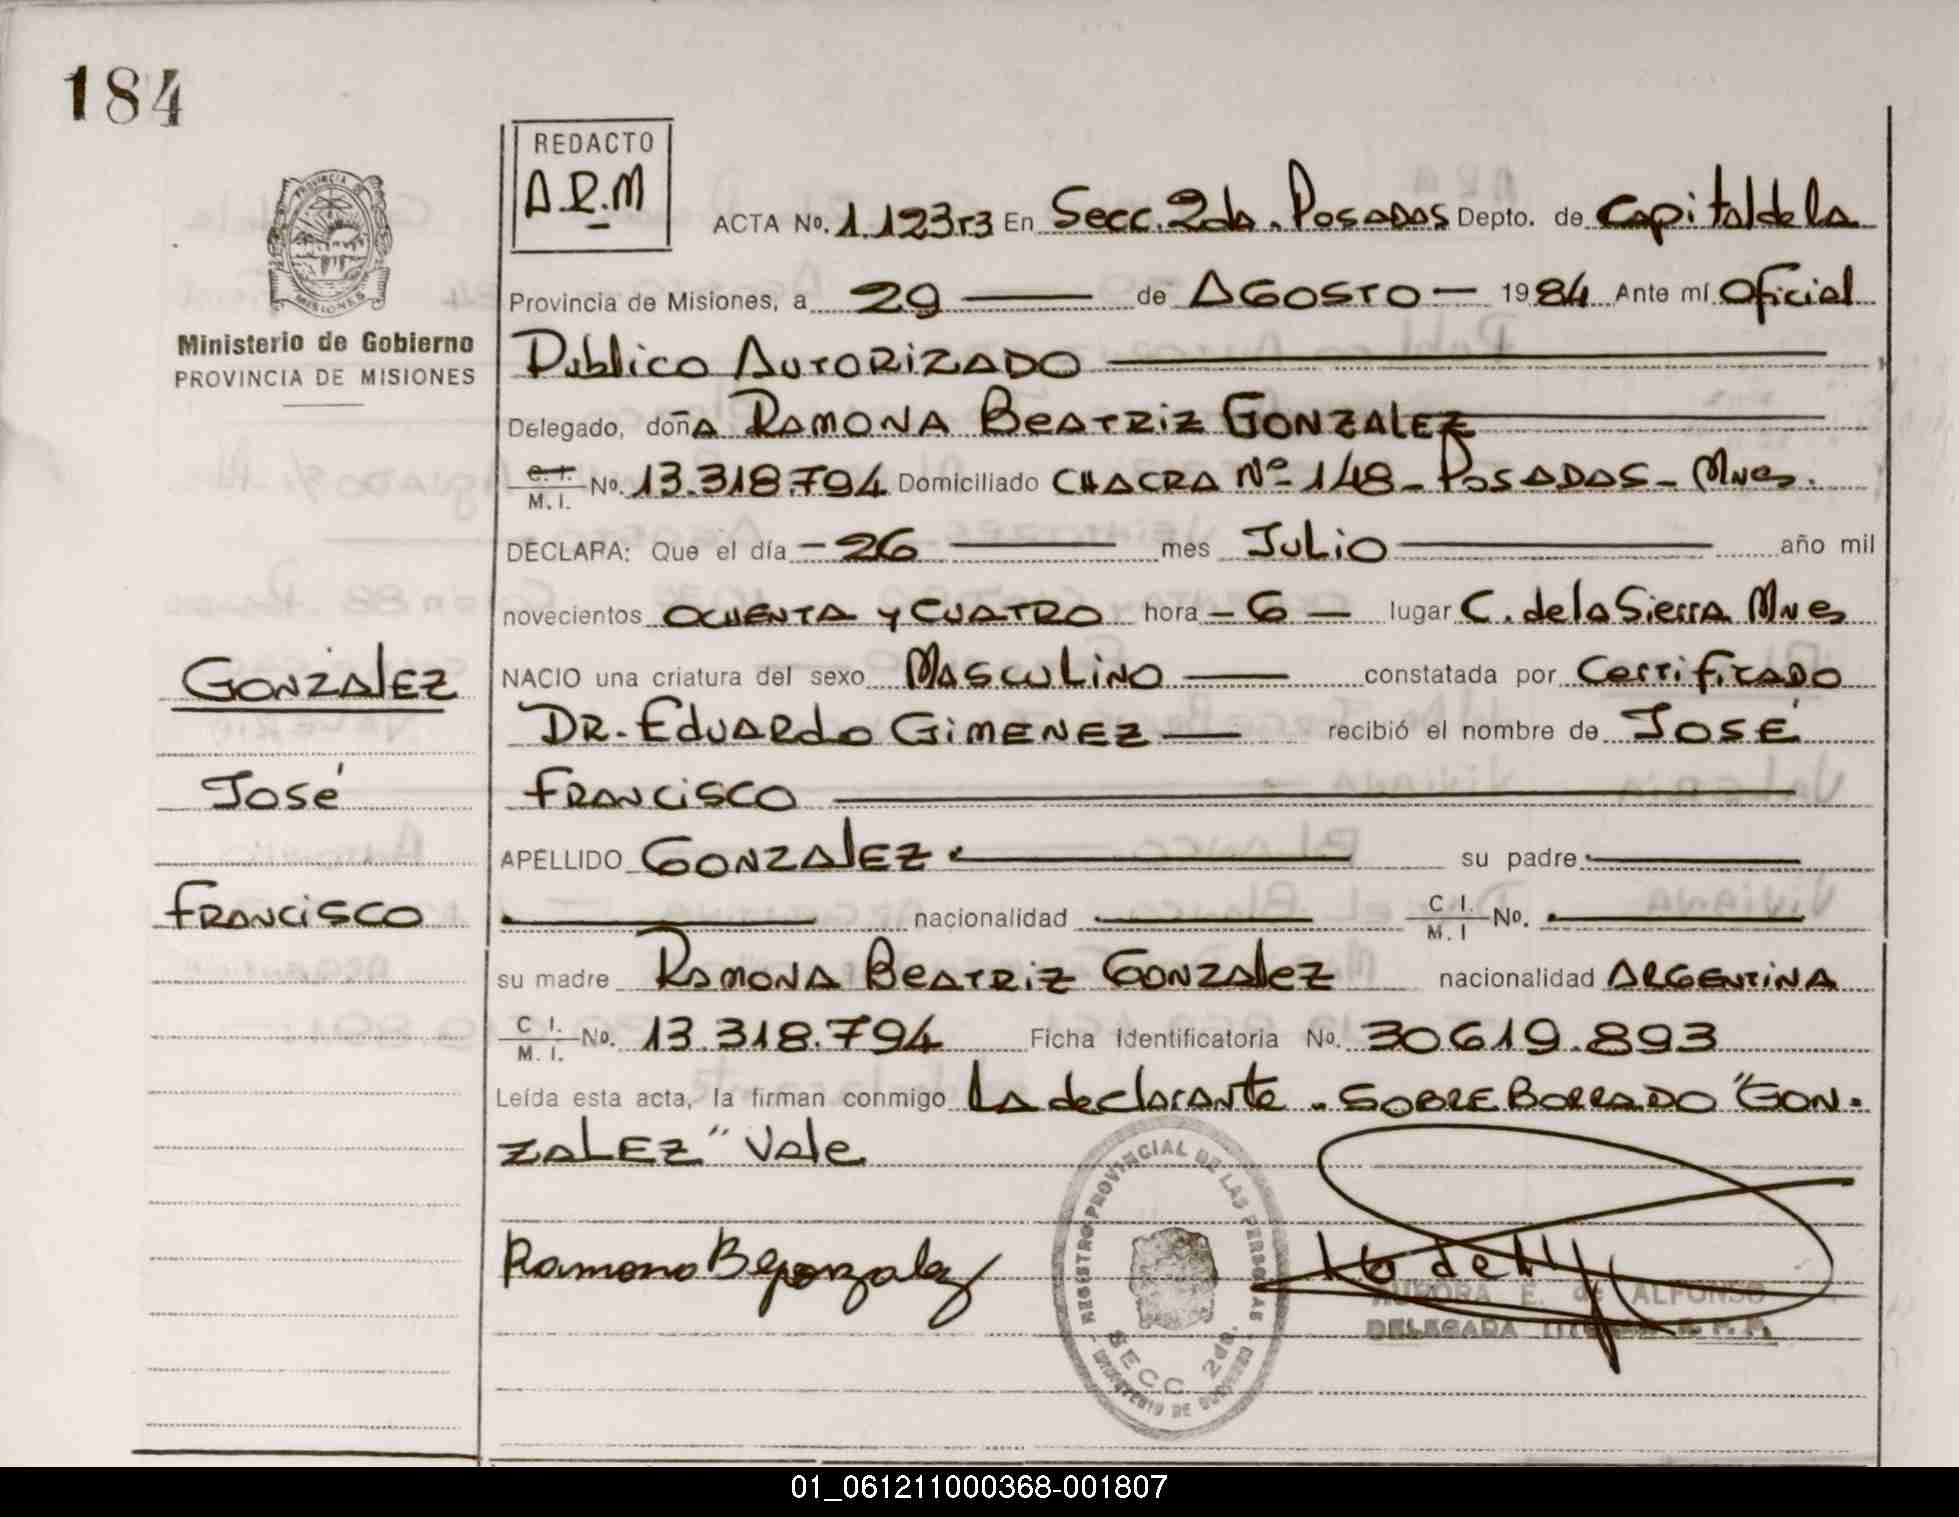 184
REDACTO
A.R.M
PROVINCIA DE
MISIONES
Ministerio de Gobierno
PROVINCIA DE MISIONES
ACTA No. 1.123T3 En Secc. 2da. Posadas Depto. de Capital de la
Provincia de Misiones, a 29 — de AGOSTO — 1984 Ante mí Oficial
Publico AUTORIZADO
Delegado, doñA RAMONA BEATRIZ GONZALEZ
C. I. M. I. No. 13.318.794 Domiciliado CHACRA Nº 148 - POSADAS - Mnes.
DECLARA: Que el día - 26 — mes Julio — año mil
novecientos OCHENTA y CUATRO hora - 6 — lugar C. de la Sierra Mnes
NACIO una criatura del sexo MASCULINO — constatada por Certificado
DR. Eduardo GIMENEZ — recibió el nombre de JOSÉ
FRANCISCO
APELLIDO GONZALEZ su padre
nacionalidad C I. M. I No.
su madre RAMONA BEATRIZ GONZALEZ nacionalidad ARGENTINA
C I. M. I. No. 13.318.794 Ficha Identificatoria No. 30619.893
Leída esta acta, la firman conmigo La declarante - SOBREBORRADO "GON-
ZALEZ" Vale
GONZALEZ
José
FRANCISCO
Ramona B gonzalez
REGISTRO PROVINCIAL DE LAS PERSONAS
SECC 2da.
MINISTERIO DE GOBIERNO
AURORA E. de ALFONSO
DELEGADA
01_061211000368-001807